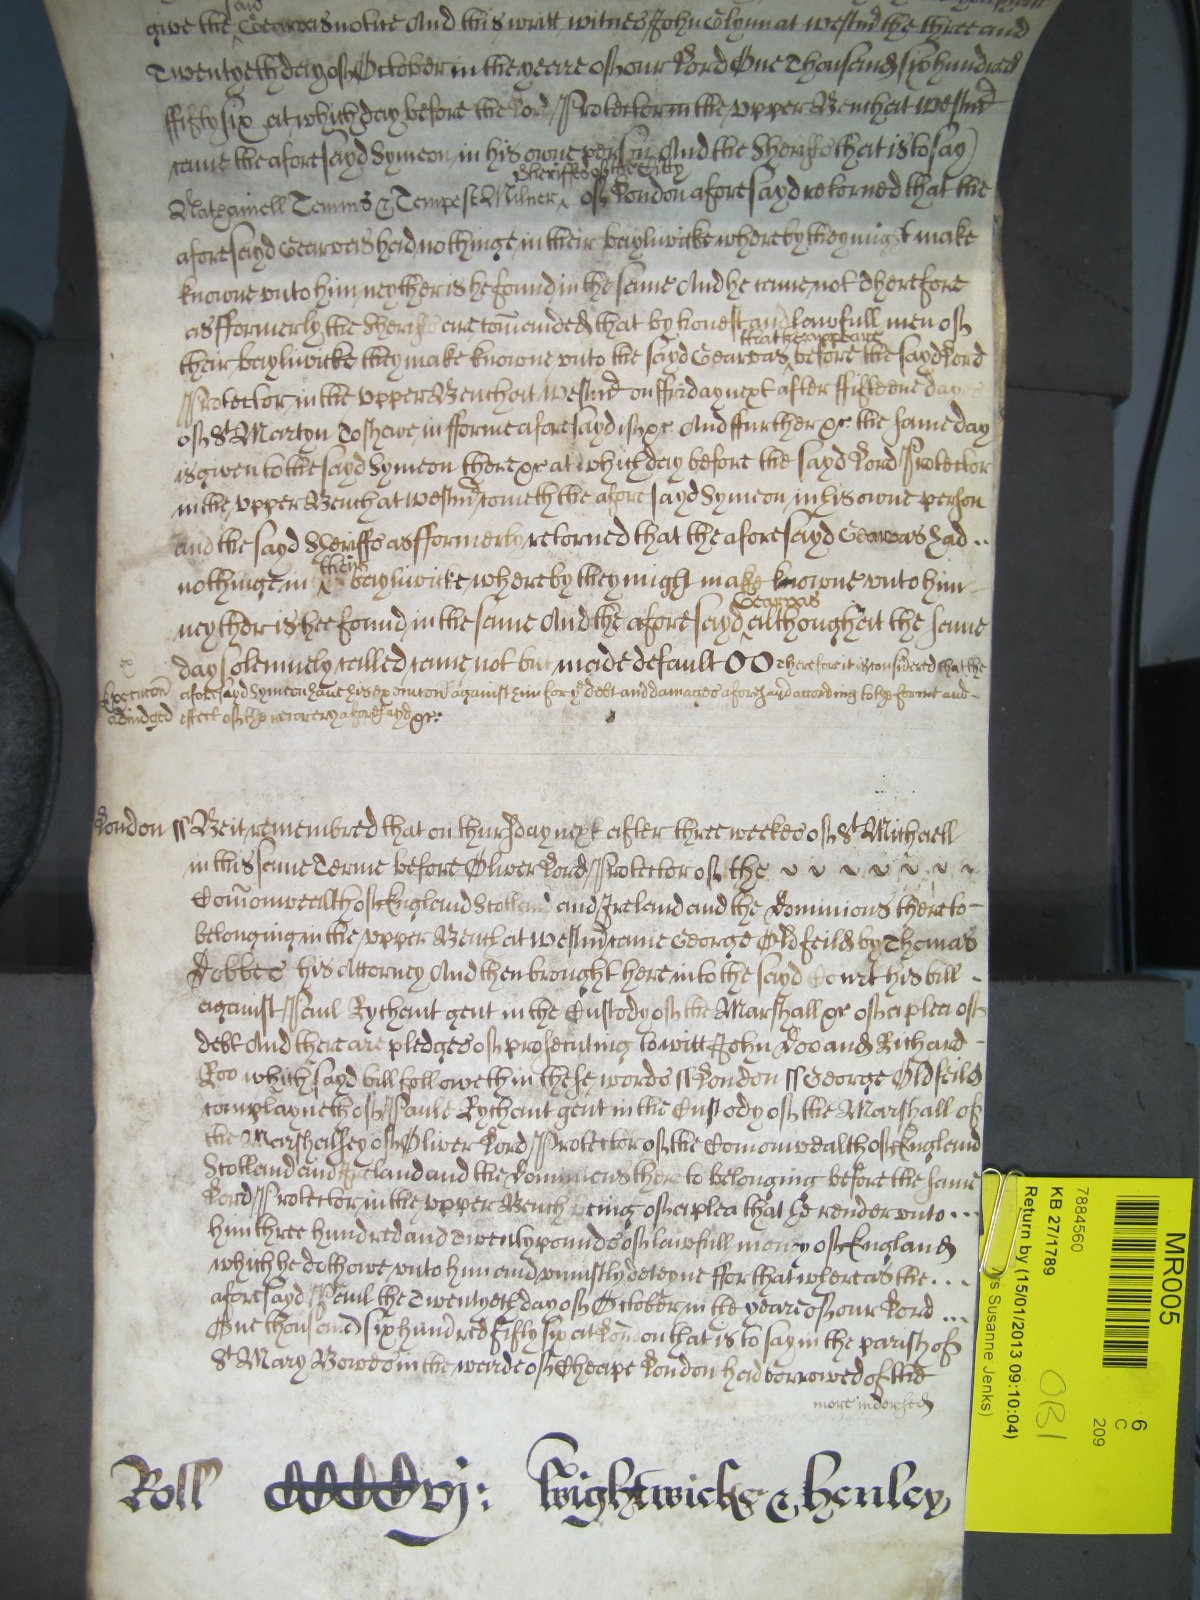 give the Gearvas notice And this writt witnes John Glynn at Westm̃ the three and
Twentyeth day of October in the yeare of our Lord One Thousand six hundred
ffifty six at which day before the Lord Protector in the Upper Bench at Westm̃
came the aforesayd Symeon in his owne person And the Sheriffs that is to say
Sheriffs of the Citty
Nathaniell Temms & Tempest Milner of London aforesayd retorned that the
aforesayd Gearvas had nothinge in their bayliwicke whereby they might make
knowne unto him neyther is he found in the same And he came not Therefore
as fformerly the Sheriffs are com̃anded that by honest and lawfull men of
that he appeare
their bayliwicke they make knowne unto the sayd Gearvas before the sayd Lord
Protector in the Upper Bench at Westm̃ on ffriday next after ffifteene dayes
of St Martyn To shewe in fforme aforesayd if &c And ffurther &c the same day
is given to the sayd Symeon there &c at which day before the sayd Lord Protector
in the Upper Bench at Westm̃ cometh the aforesayd Symeon in his owne person
and the sayd Sheriffs as fformerly retorned that the aforesayd Gearvas had ..
their
nothinge in bayliwicke whereby they might make knowne unto him
Gearvas
neyther is hee found in the same And the aforesayd although at the same
day solemnely called came not but made default OO Therefore it is considered that the
Execucon aforesayd Symeon have his execucon against him for ye debt and damages aforesayd according to the forme and
adiudged effect of the recovery aforesayd &c:
London ss Be it remembred that on thursday next after three weekes of St Michaell
in this same Terme before Oliver Lord Protector of the
Com̃onwealth of England Scotland and Ireland and the Dominions thereto
belonging in the Upper Bench at Westm̃ came George Oldfeild by Thomas
Dobbes his Attorney And then brought here into the sayd Court his bill
against Paul Rychaut gent in the Custody of the Marshall &c of a plea of
debt And there are pledges of prosecuting to witt John Doo and Richard
Roo which sayd bill followeth in these words ss London ss George Oldfeild
complayneth of Paule Rychaut gent in the Custody of the Marshall of
the Marshalsey of Oliver Lord Protector of the Comonwealth of England
Scotland and Ireland and the Dominions thereto belonging before the same
Lord Protector in the Upper Bench being of a plea that he render unto ...
him three hundred and twenty pounds of lawfull money of England
which he doth owe unto him and uniustly deteyne ffor that whereas the ...
aforesayd Paul the Twentyeth day of October in the yeare of our Lord ...
One thousand six hundred fifty six at London that is to say in the parish of
St Mary Bowe in the warde of Cheape London had borrowed of the
more indorsed
Roll CCCCvj: Wightwicke & Henley
MR005
6
C
209
7884560
KB 27/1789
Return by (15/01/2013 09:10:04)
Susanne Jenks)
OB1